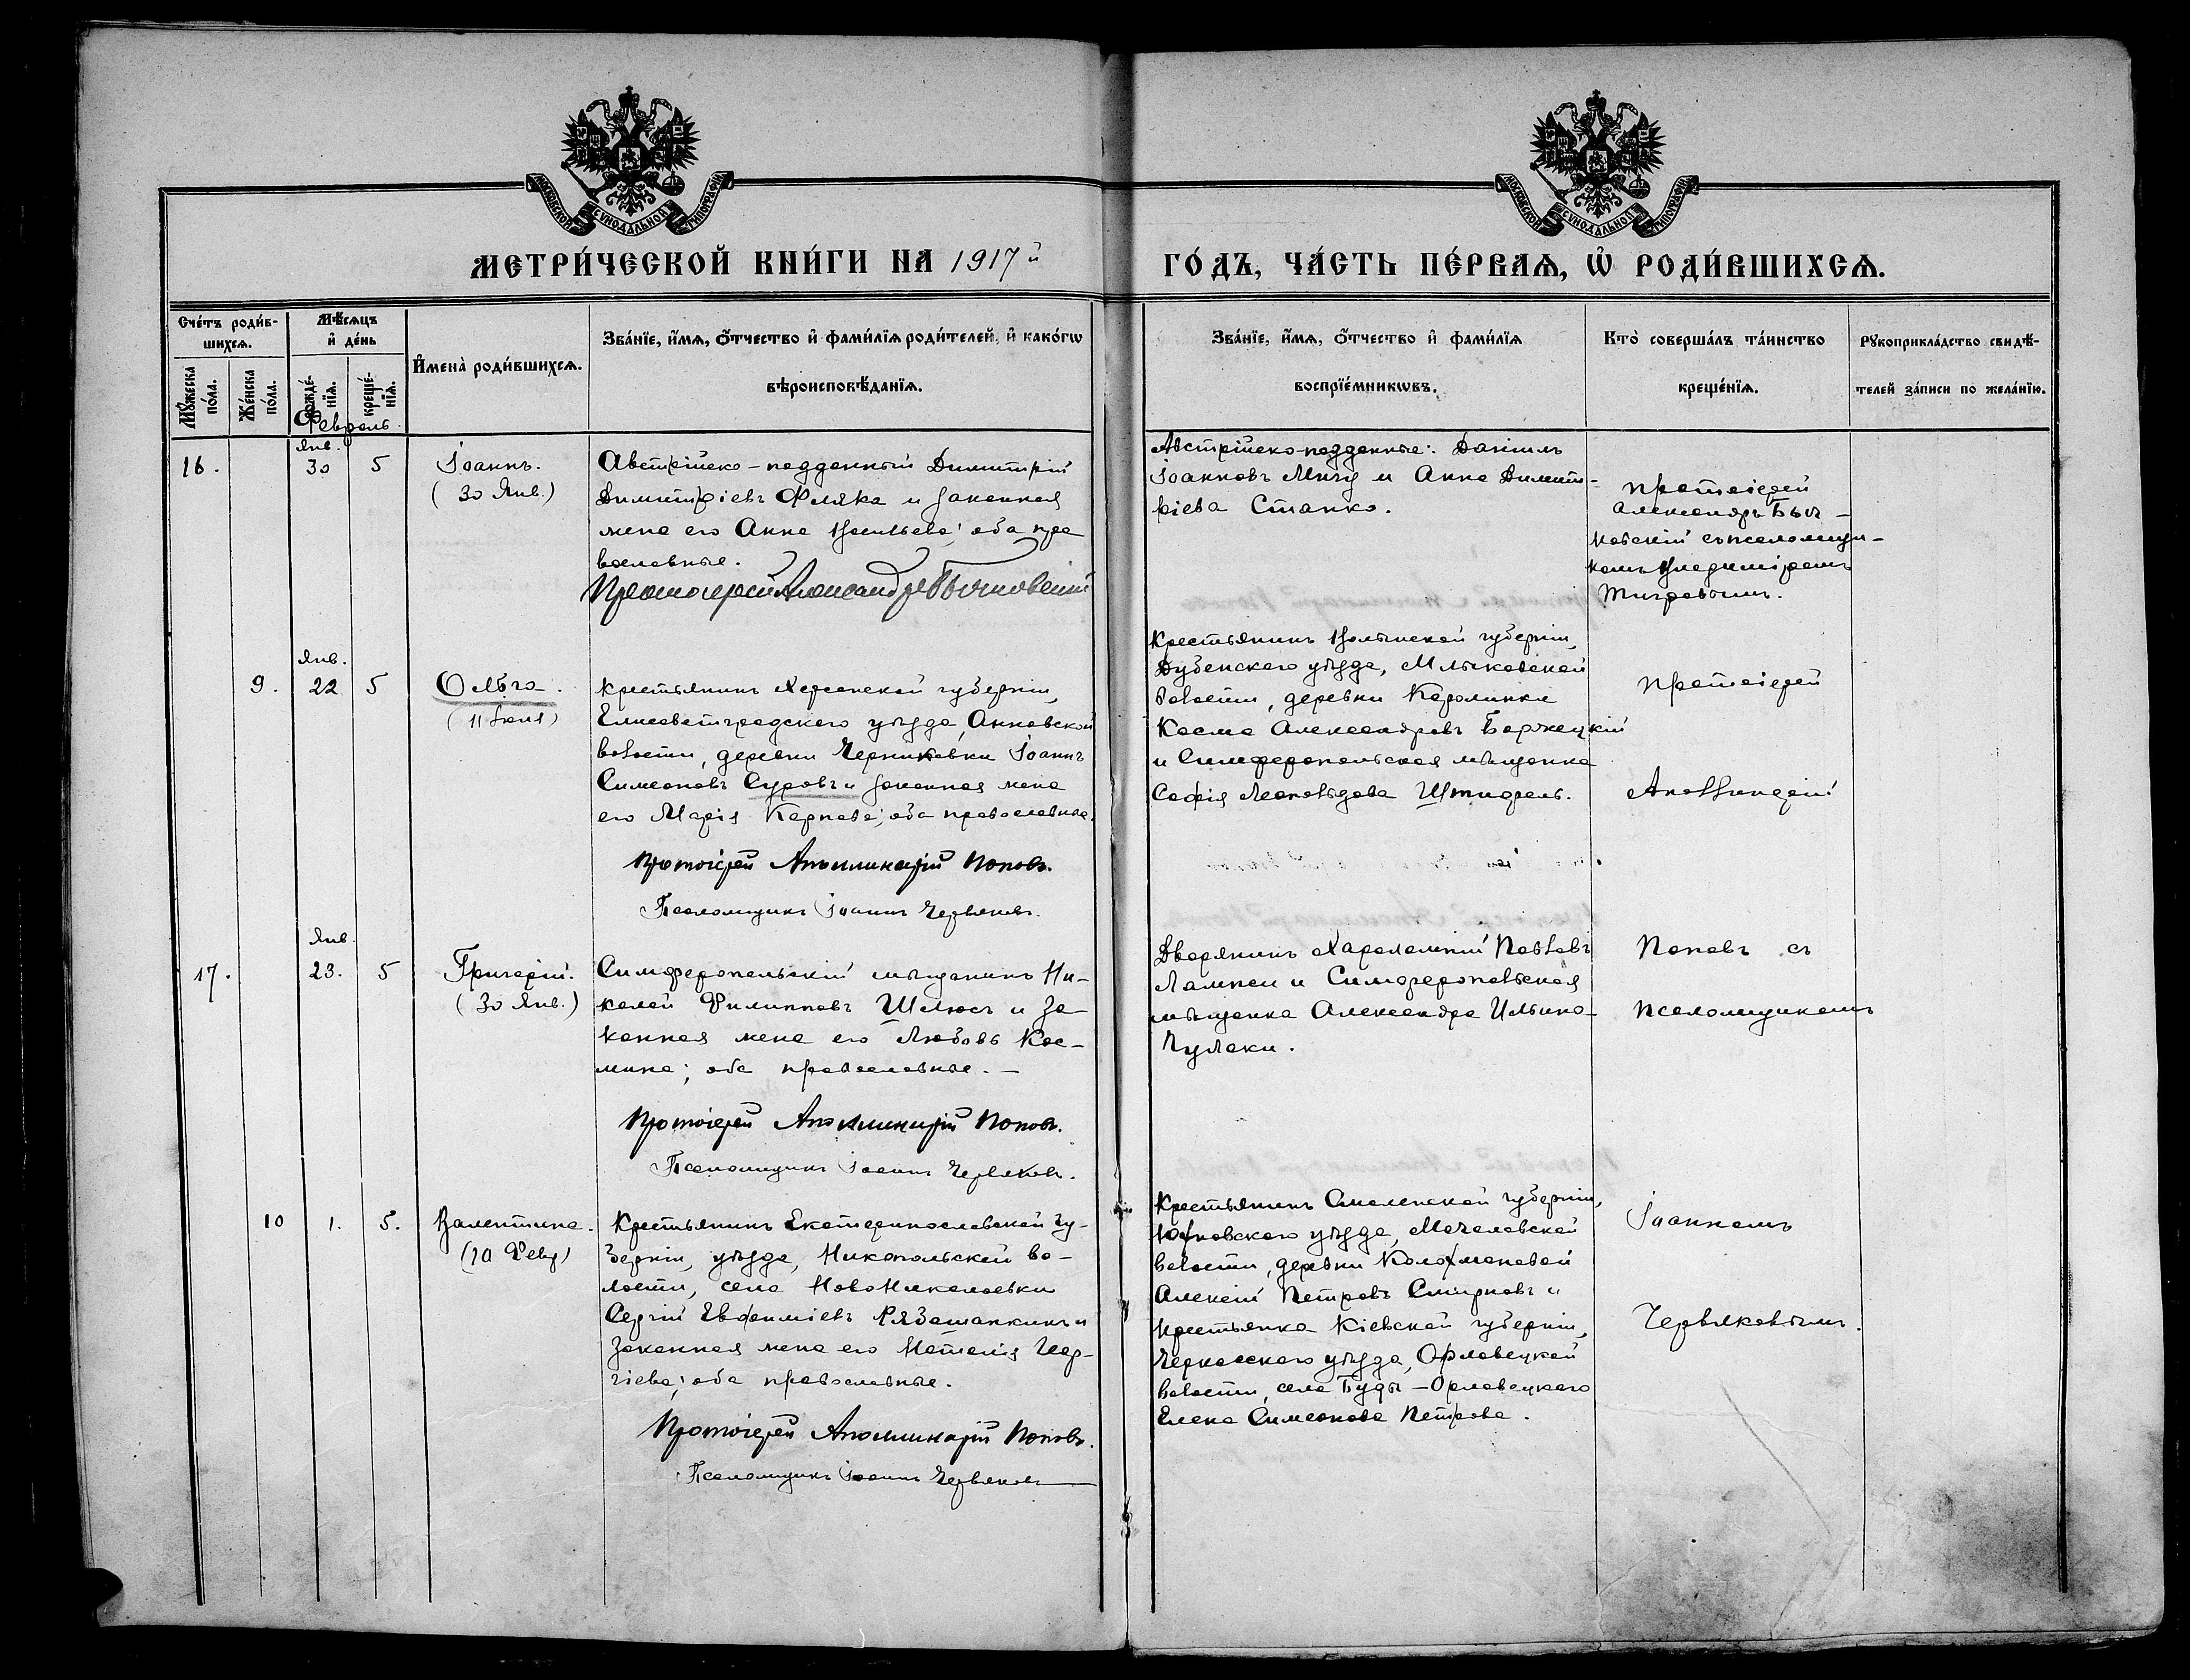 МОСКОВСКОЙ СУНОДАЛЬНОЙ ТИПОГРАФІИ
МОСКОВСКОЙ СУНОДАЛЬНОЙ ТИПОГРАФІИ
МЕТРИ́ЧЕСКОЙ КНИ́ГИ НА 1917й
ГО́ДЪ, ЧА́СТЬ ПЕ́РВАѦ, Ѡ҆ РОДИ́ВШИХСѦ.
Сче́тъ роди́в-
шихсѧ.
Мꙋ́жеска по́ла.
Же́нска по́ла.
Мѣ́сѧцъ
и҆ де́нь
рожде́-
нїѧ.
креще́-
нїѧ.
Февраль
И҆мена̀ роди́вшихсѧ.
Зва́нїе, и҆́мѧ, ѻ҆́тчество и҆ фами́лїѧ роди́телей, и҆ како́гѡ
вѣроисповѣ́данїѧ.
Зва́нїе, и҆́мѧ, ѻ҆́тчество и҆ фами́лїѧ
воспрїе́мникѡвъ.
Кто̀ соверша́лъ та́инство
креще́нїѧ.
Рꙋкоприкла́дство свидѣ́-
телей за́писи по жела́нїю.
16.
Янв.
30
5
Іоаннъ.
(30 Янв.)
Австрійско-подданный Димитрій
Димитріевъ Фляка и законная
жена его Анна Васильева; оба пра
вославные.
Протоіерей Александръ Бычковскій
Австрійско-подданные: Даніилъ
Іоанновъ Мичу и Анна Димит-
ріева Станко.
Протоіерей
Александръ Быч-
ковскій съ псаломщи-
комъ Владиміромъ
Тигровымъ.
9.
Янв.
22
5
Ольга.
(11 Іюля)
Крестьянинъ Херсонской губерніи,
Елисаветградского уѣзда, Анновской
волости, деревни Черниковки Іоаннъ
Симеоновъ Суровъ и законная жена
его Марія Карпова; оба православные.
Протоіерей Аполлинарій Поповъ.
Псаломщикъ Іоаннъ Червяковъ.
Крестьянинъ Волынской губерніи,
Дубенского уѣзда, Млыновской
волости, деревни Каролинки
Косма Александровъ Боржецкій
и Симферопольская мѣщанка
Софія Леопольдова Штифель.
Протоіерей
Аполлинарій
17.
Янв.
23.
5
Григорій.
(30 Янв.)
Симферопольскій мѣщанинъ Ни-
колай Филипповъ Шлюсъ и за-
конная жена его Любовь Кос-
мина; оба православные. —
Протоіерей Аполлинарій Поповъ.
Псаломщикъ Іоаннъ Червяковъ.
Дворянинъ Харалампій Павловъ
Лампси и Симферопольская
мѣщанка Александра Ильина-
Чулаки.
Поповъ съ
псаломщикомъ
10
1.
5.
Валентина.
(10 Февр)
Крестьянинъ Екатеринославской гу-
берніи, уѣзда, Никопольской во-
лости, села НовоНиколаевки
Сергій Евфиміевъ Рябошапкинъ и
законная жена его Наталія Геор-
гіева; оба православные.
Протоіерей Аполлинарій Поповъ.
Псаломщикъ Іоаннъ Червяковъ
Крестьянинъ Смоленской губерніи,
Юхновского уѣзда, Мочаловской
волости, деревни Колохмановой
Алексій Петровъ Смирновъ и
крестьянка Кіевской губерніи,
Черкасского уѣзда, Орловецкой
волости, села Буды-Орловецкого
Елена Симеонова Петрова.
Іоанномъ
Червяковымъ.